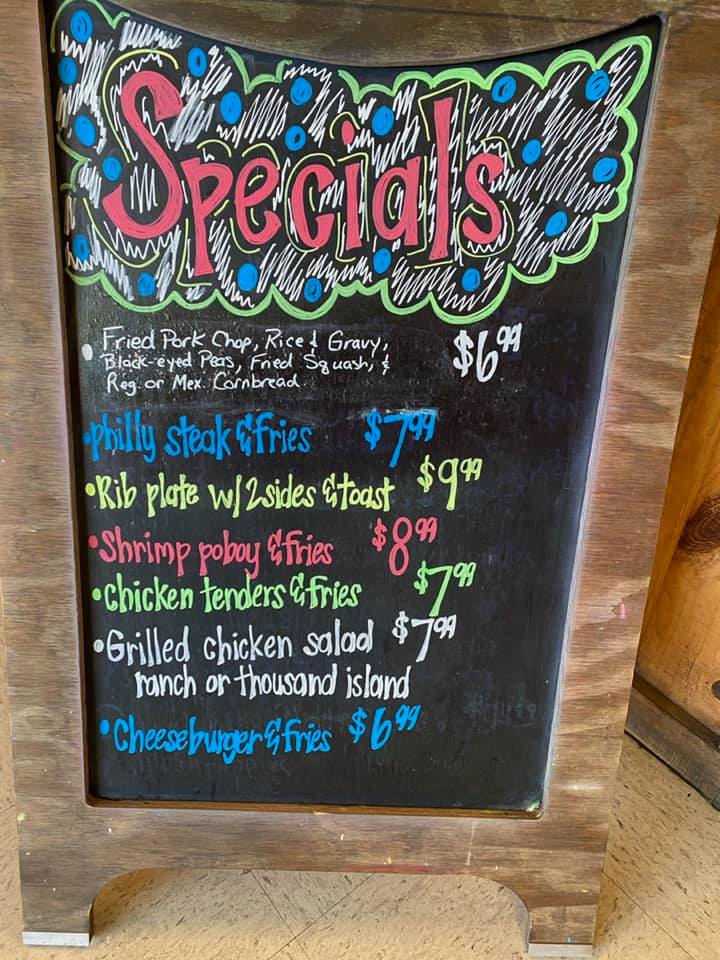 Specials
Fried Pork Chop, Rice & Gravy, $6.99
Black-eyed Peas, Fried Squash, &
Reg. or Mex. Cornbread
•philly steak & fries $7.99
•Rib plate w/ 2 sides & toast $9.99
•Shrimp poboy & fries $8.99
•Chicken tenders & fries $7.99
•Grilled chicken salad $7.99
ranch or thousand island
•Cheeseburger & fries $6.99